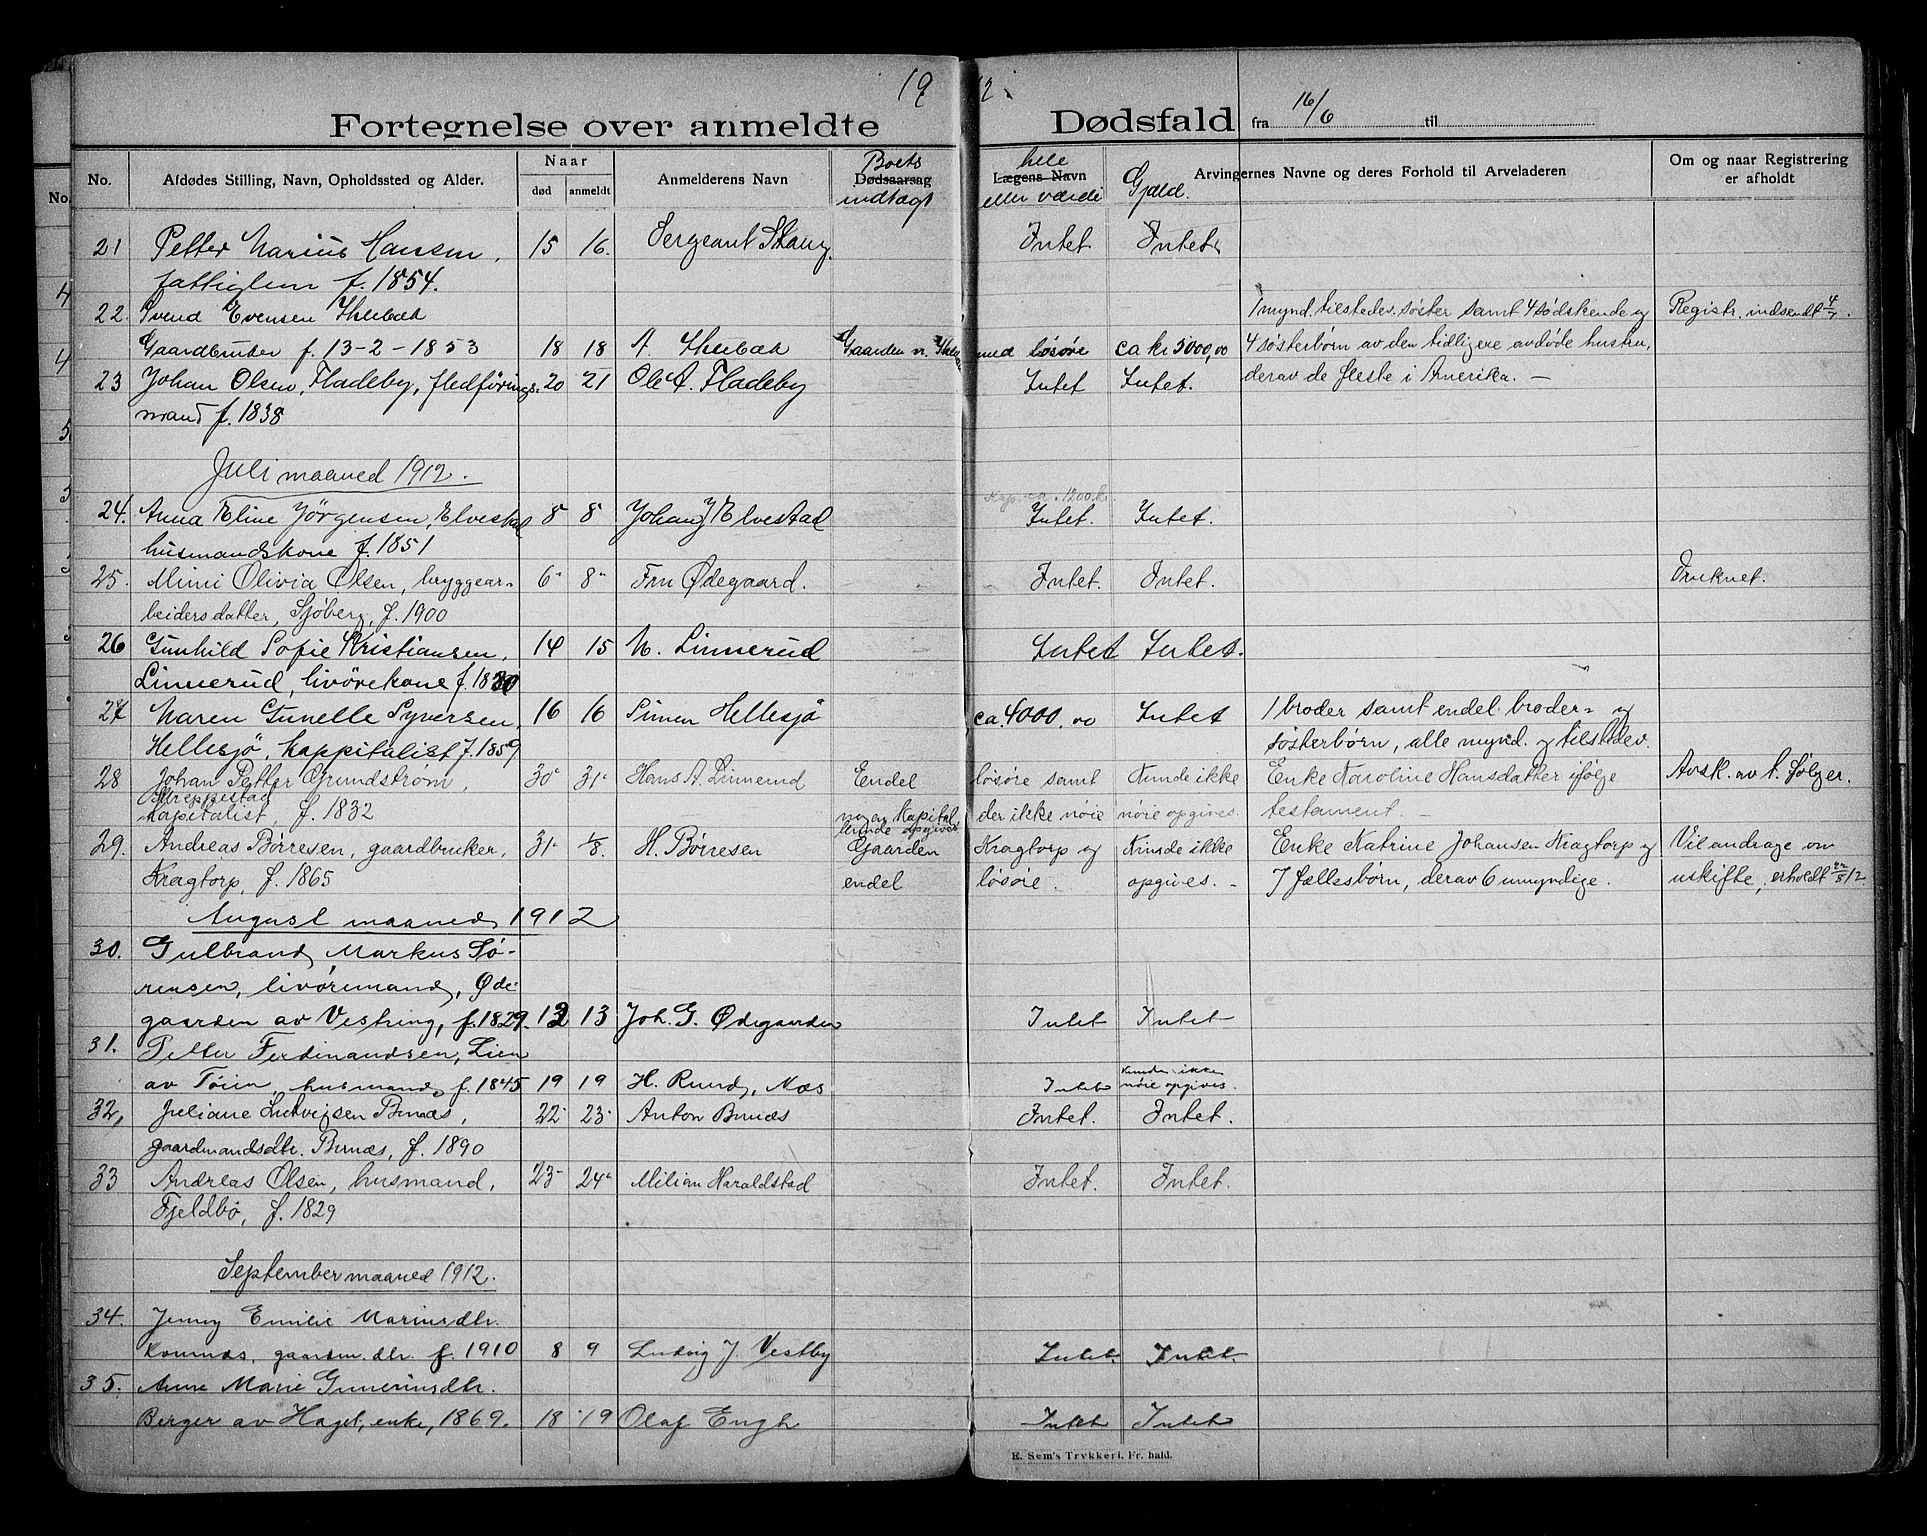 1912.
Fortegnelse over anmeldte Dødsfald fra 16/6 til
No. Afdødes Stilling, Navn, Opholdssted og Alder. Naar død anmeldt Anmelderens Navn Dødsaarsag Boets indtægt Lægens Navn hele eller værdi Gjæld. Arvingernes Navne og deres Forhold til Arveladeren Om og naar Registrering er afholdt
21 Petter Marius Hansen, 15 16. Sergeant Skaug. Intet Intet
fattiglem f. 1854.
22. Svend Evensen 1 mynd. tilstedev. søster samt 4 sødskende og Registr. indsendt 4/7.
Gaardbruder f. 13-2-1853 18 18 A. Gaarden med løsøre ca kr 3000,00 4 søsterbørn av den tidligere avdøde hustru,
23 Johan Olsen, Fladeby, flødførings- 20 21 Ole A. Fladeby Intet Intet. derav de fleste i Amerika. —
mand f. 1838
Juli maaned 1912.
24. Anna Eline Jørgensen, Elvestad 8 8 Johan J Elvestad ca. 1200 kr Intet. Intet.
husmandskone f. 1851
25. Mimi Olivia Olsen, bryggear- 6 8 Fru Ødegaard. Intet. Intet. Druknet.
beidersdatter, Sjøberg, f. 1900
26 Gunhild Sofie Kristiansen, 14 15 M. Linnerud Intet Intet.
Linnerud, livørekone f. 1830
27 Maren Gunelle Syversen, 16 16 Simen Hellesjø ca. 4000,00 Intet 1 broder samt endel broder- og
Hellesjø, kappitalist f. 1859 søsterbørn, alle mynd. og tilstedev.
28 Johan Petter Grundstrøm, 30 31 Hans A. Linnerud Endel løsøre samt Kunde ikke Enke Karoline Hansdatter ifølge Avsk. av t. følger.
Streppestad
kapitalist, f. 1832 noget Kapital der ikke nøie nøie opgives. testament. —
kunde opgives
29. Andreas Børresen, gaardbruker, 31 1/8. H. Børresen Gaarden Kragtorp og Kunde ikke Enke Katrine Johansen Kragtorp og Vil andrage om
Kragtorp, f. 1865 endel løsøre. opgives. - 7 fællesbørn, derav 6 umyndige. uskifte, erholdt 22/8 12.
August maaned 1912
30. Gulbrand Markus Sø-
rensen, livøremand, Øde-
gaarden av Vestreng, f. 1829. 12 13 Joh. G. Ødegaarden Intet Intet
31. Petter Ferdinandsen, Lien
av Tøien, husmand, f. 1845 19 19 H. Rund, Næs Intet Kunde ikke nøie opgives.
32, Juliane Ludvigsen Bunæs, 22 23 Anton Bunæs Intet. Intet.
gaardmandsdtr. Bunæs, f. 1890
33 Andreas Olsen, husmand, 23 24 Milian Haraldstad Intet. Intet.
Fjeldbø, f. 1829
September maaned 1912.
34. Jenny Emilie Mariusdtr.
Komnæs, gaardm. dtr. f. 1910 8 9 Ludvig J. Vestby Intet. Intet.
35. Anne Marie Gunneriusdtr.
Berger av Haget, enke, 1869. 18 19 Olaf Engh Intet Intet
E. Sem's Trykkeri, Fr. hald.